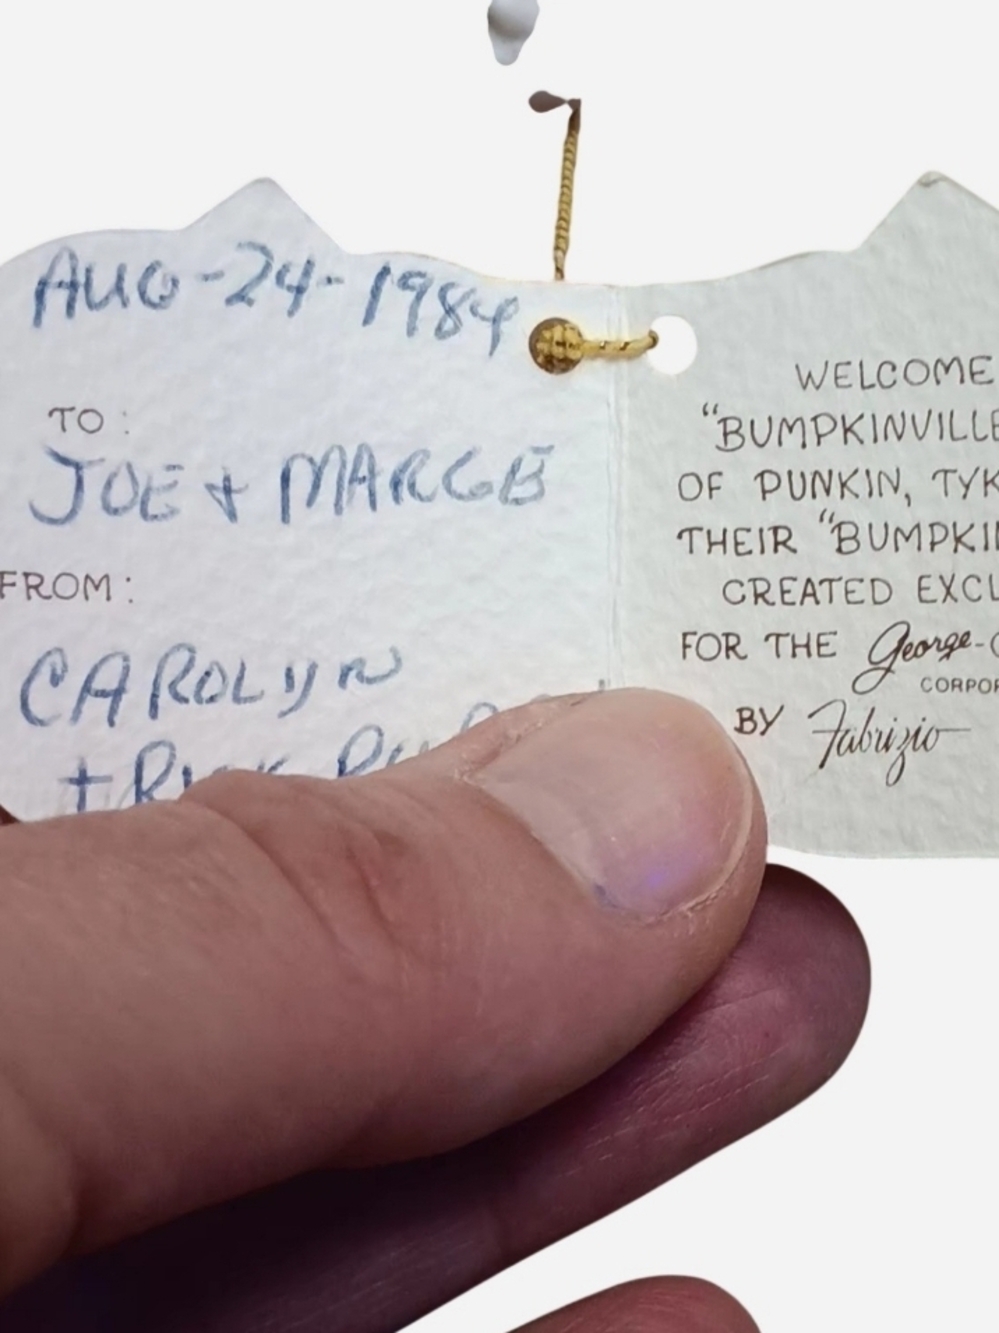 AUG-24-1984
TO:
JOE + MARGE
FROM:
CAROLYN
+
WELCOME
"BUMPKINVILLE
OF PUNKIN, TYK
THEIR "BUMPKI
CREATED EXCL
FOR THE George-
CORPOR
BY Fabrizio